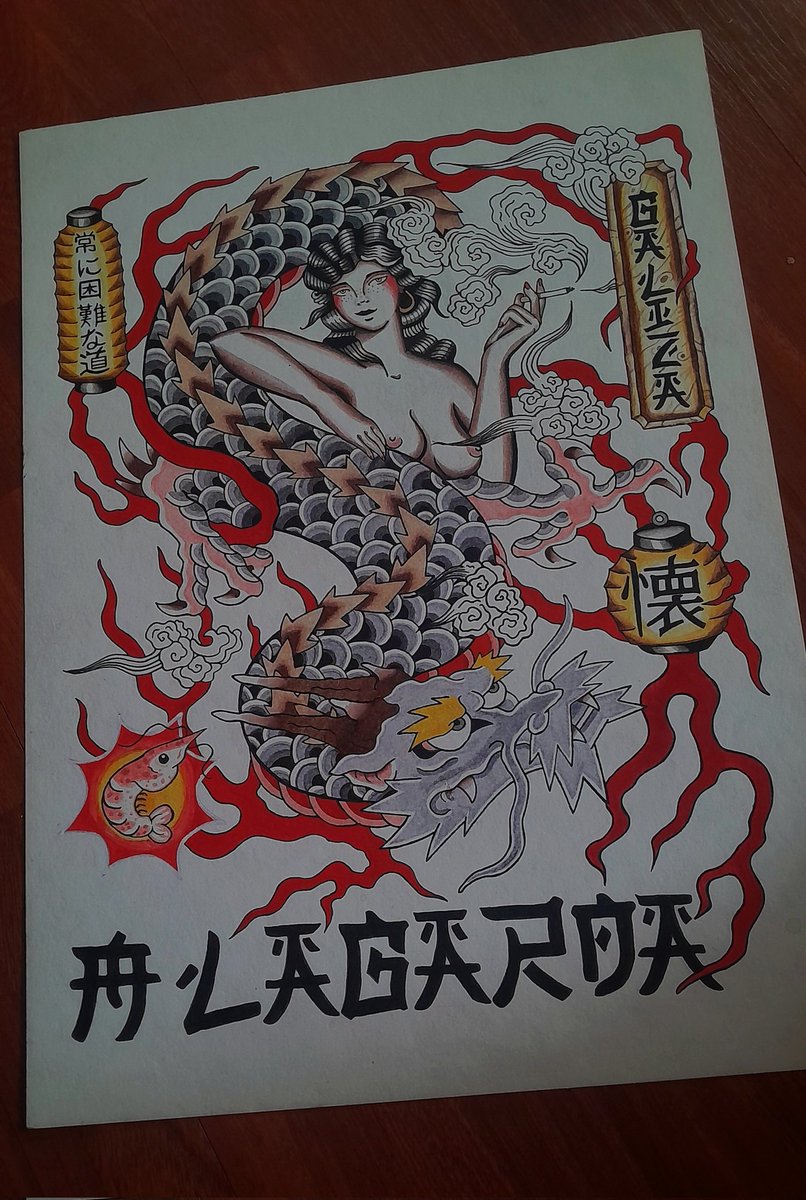 常に困難な道
GALIZA
懐
A LAGARDA